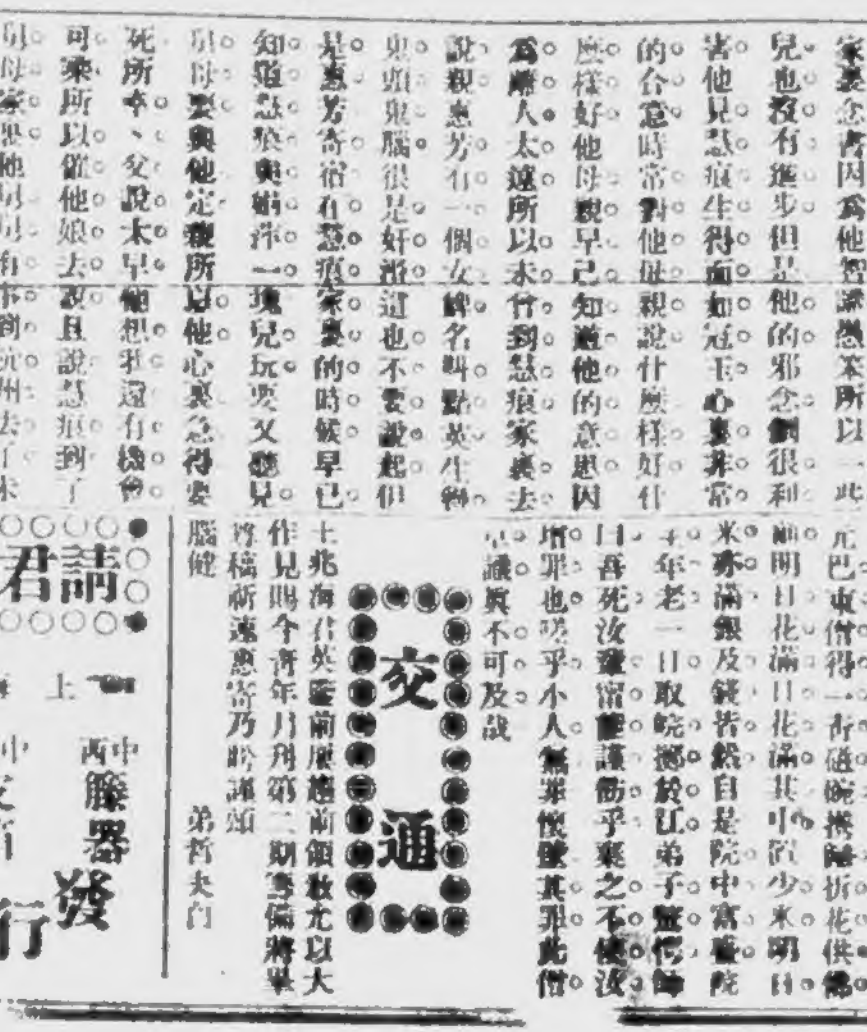 家裏念書因爲他智識愚笨所以一些
兒也沒有進步但是他的邪念倒很利
害他見慧痕生得面如冠玉心裏非常
的合意時常對他母親說什麼樣好什
麼樣好他母親早已知道他的意思因
爲離人太遠所以未曾到慧痕家裏去
說親惠芳有一個女婢名叫點英生得
鬼頭鬼腦很是奸滑這也不要說起但
是惠芳寄宿在慧痕家裏的時候早已
知道慧痕與娟萍一塊兒玩耍又聽見
母要與他定親所以他心裏急得要
死所幸父說太早他想我還有機會
可乘所以催他娘去說且說慧痕到了
母家裏他有事到杭州去了未
元巴東僧得一青磁碗攜歸折花供佛
前明日花滿其中置少米明日
米亦滿銀及錢皆然自是院中富盛院
主年老一日取碗擲於江弟子驚愕師
曰吾死汝輩甯能謹飭乎棄之不使汝
增罪也嗟乎小人無罪懷璧其罪此僧
卓識眞不可及哉
交通
士兆海君英鑒前屢趨前領教尤以大
作見賜今靑年月刊第二期籌備將畢
尊稿祈速惠寄乃盼謹頌
腦健
弟哲夫白
請
君
上
中西
籐器
發
行